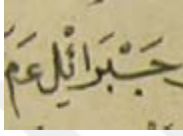 جَبْرَائِل عَم